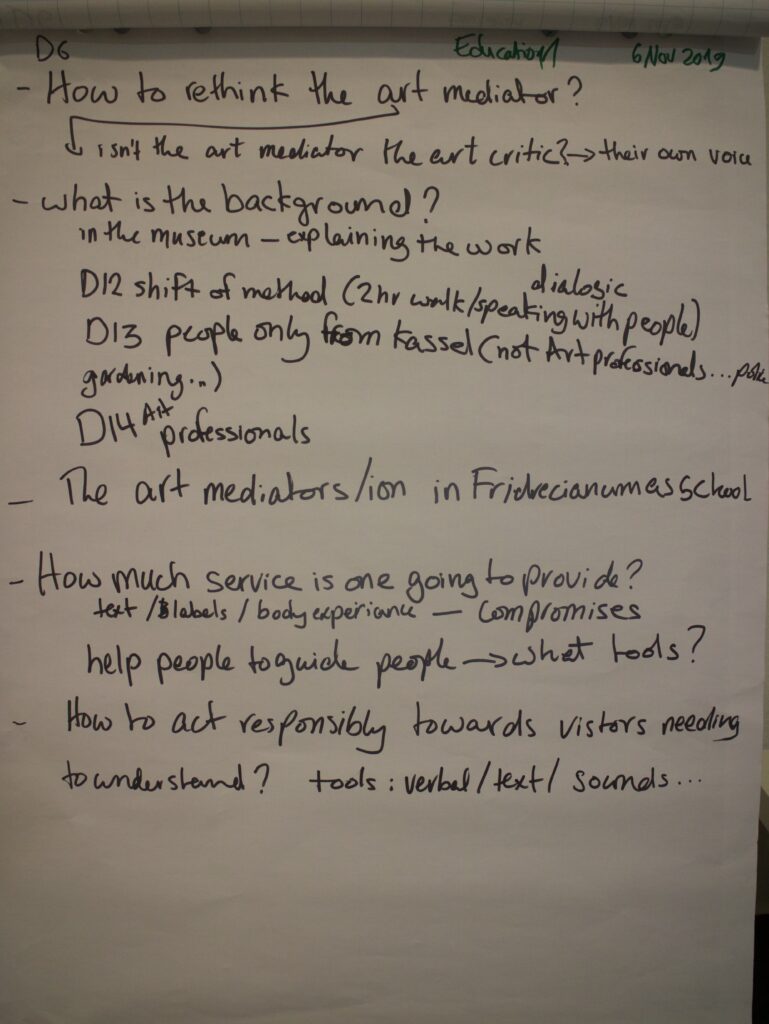 D6 Education 6 Nov 2019
- How to rethink the art mediator?
isn't the art mediator the art critic? → their own voice
- what is the background?
in the museum - explaining the work
dialogic
D12 shift of method (2hr walk/speaking with people)
D13 people only from Kassel (not Art professionals...
gardening...)
D14 Art professionals
- The art mediators/ion in Fridrecianum as School
- How much service is one going to provide?
text / labels / body experiance - compromises
help people to guide people → what tools?
- How to act responsibly towards vistors needing
to understand? tools: verbal/text/ sounds...